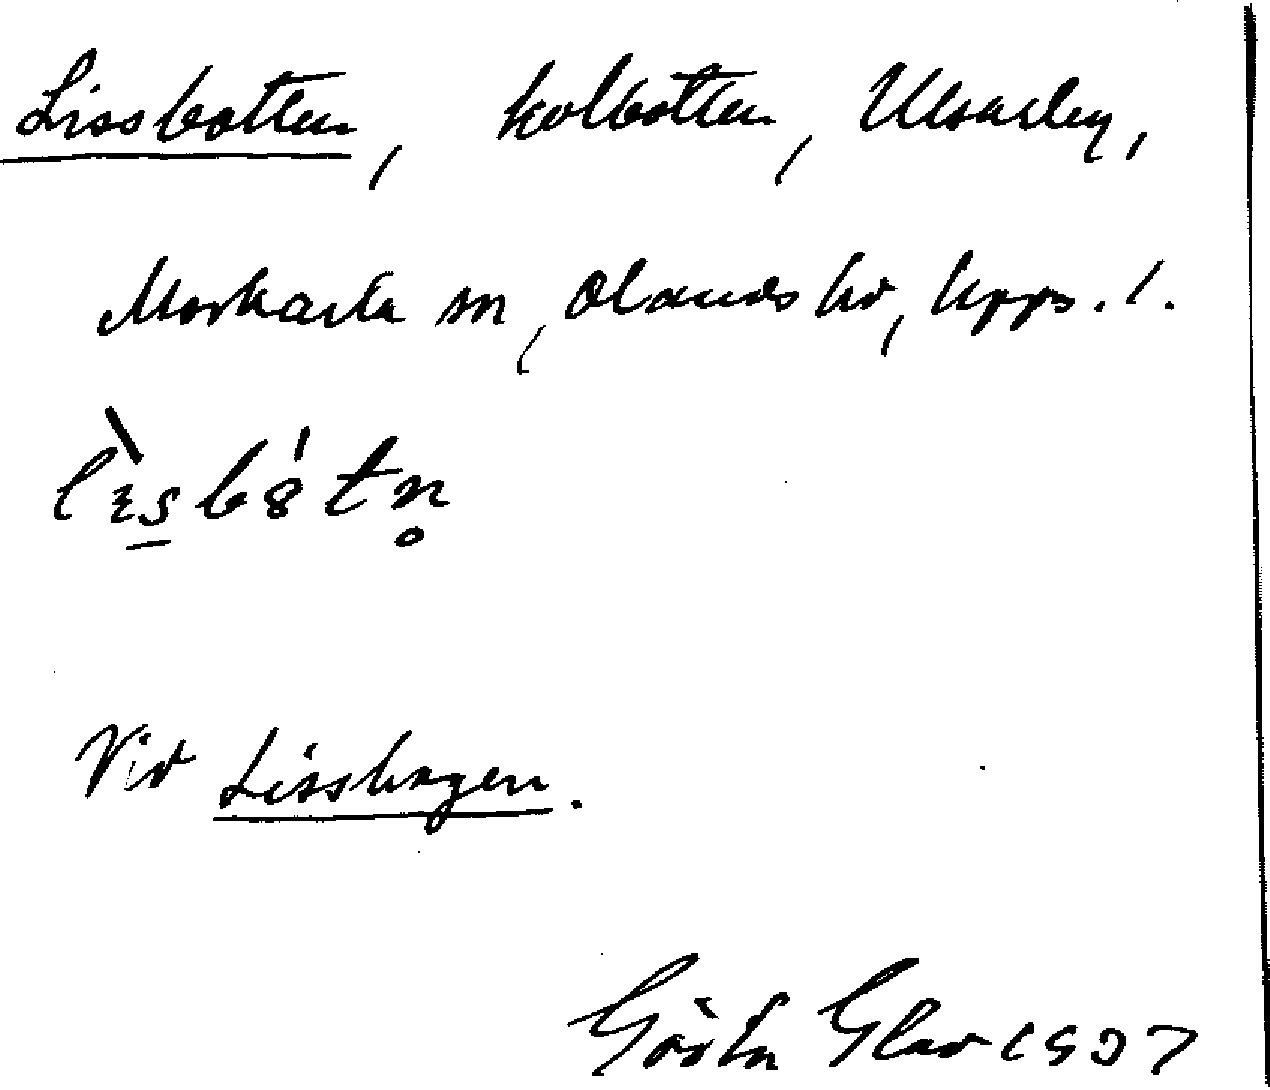 Lissbotten, kolbotten, Ulvarby,
Morkarla sn, Olands hd, Upps. l.
Vid Lisshagen.
Gösta Glad 1937